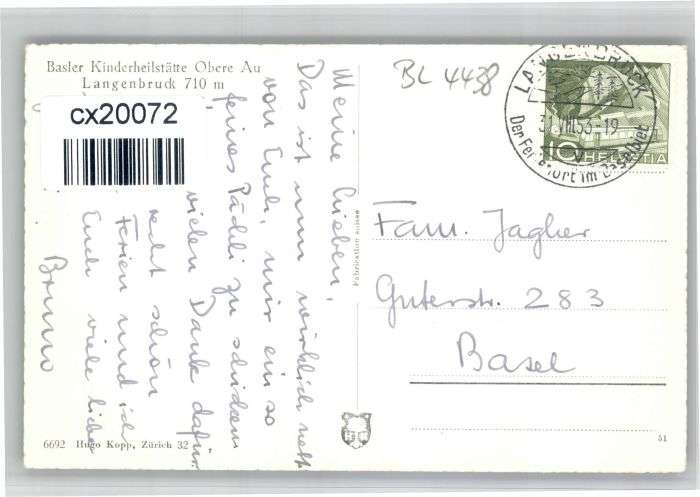 Basler Kinderheilstätte Obere Au
Langenbruck 710 m
cx20072
BL 4438
LANGENBRUCK
31.VIII.53-19
Der Ferienort im Baselbiet
10 HELVETIA
Meine Lieben,
Das ist nun wirklich nett
von Euch, mir ein so
feines Päckli zu schicken
vielen Dank dafür.
recht schöne
Ferien und ich
Euch viele liebe
Bruno
Fabrication suisse
Fam. Jagher
Güterstr. 283
Basel
6692 Hugo Kopp, Zürich 32
51